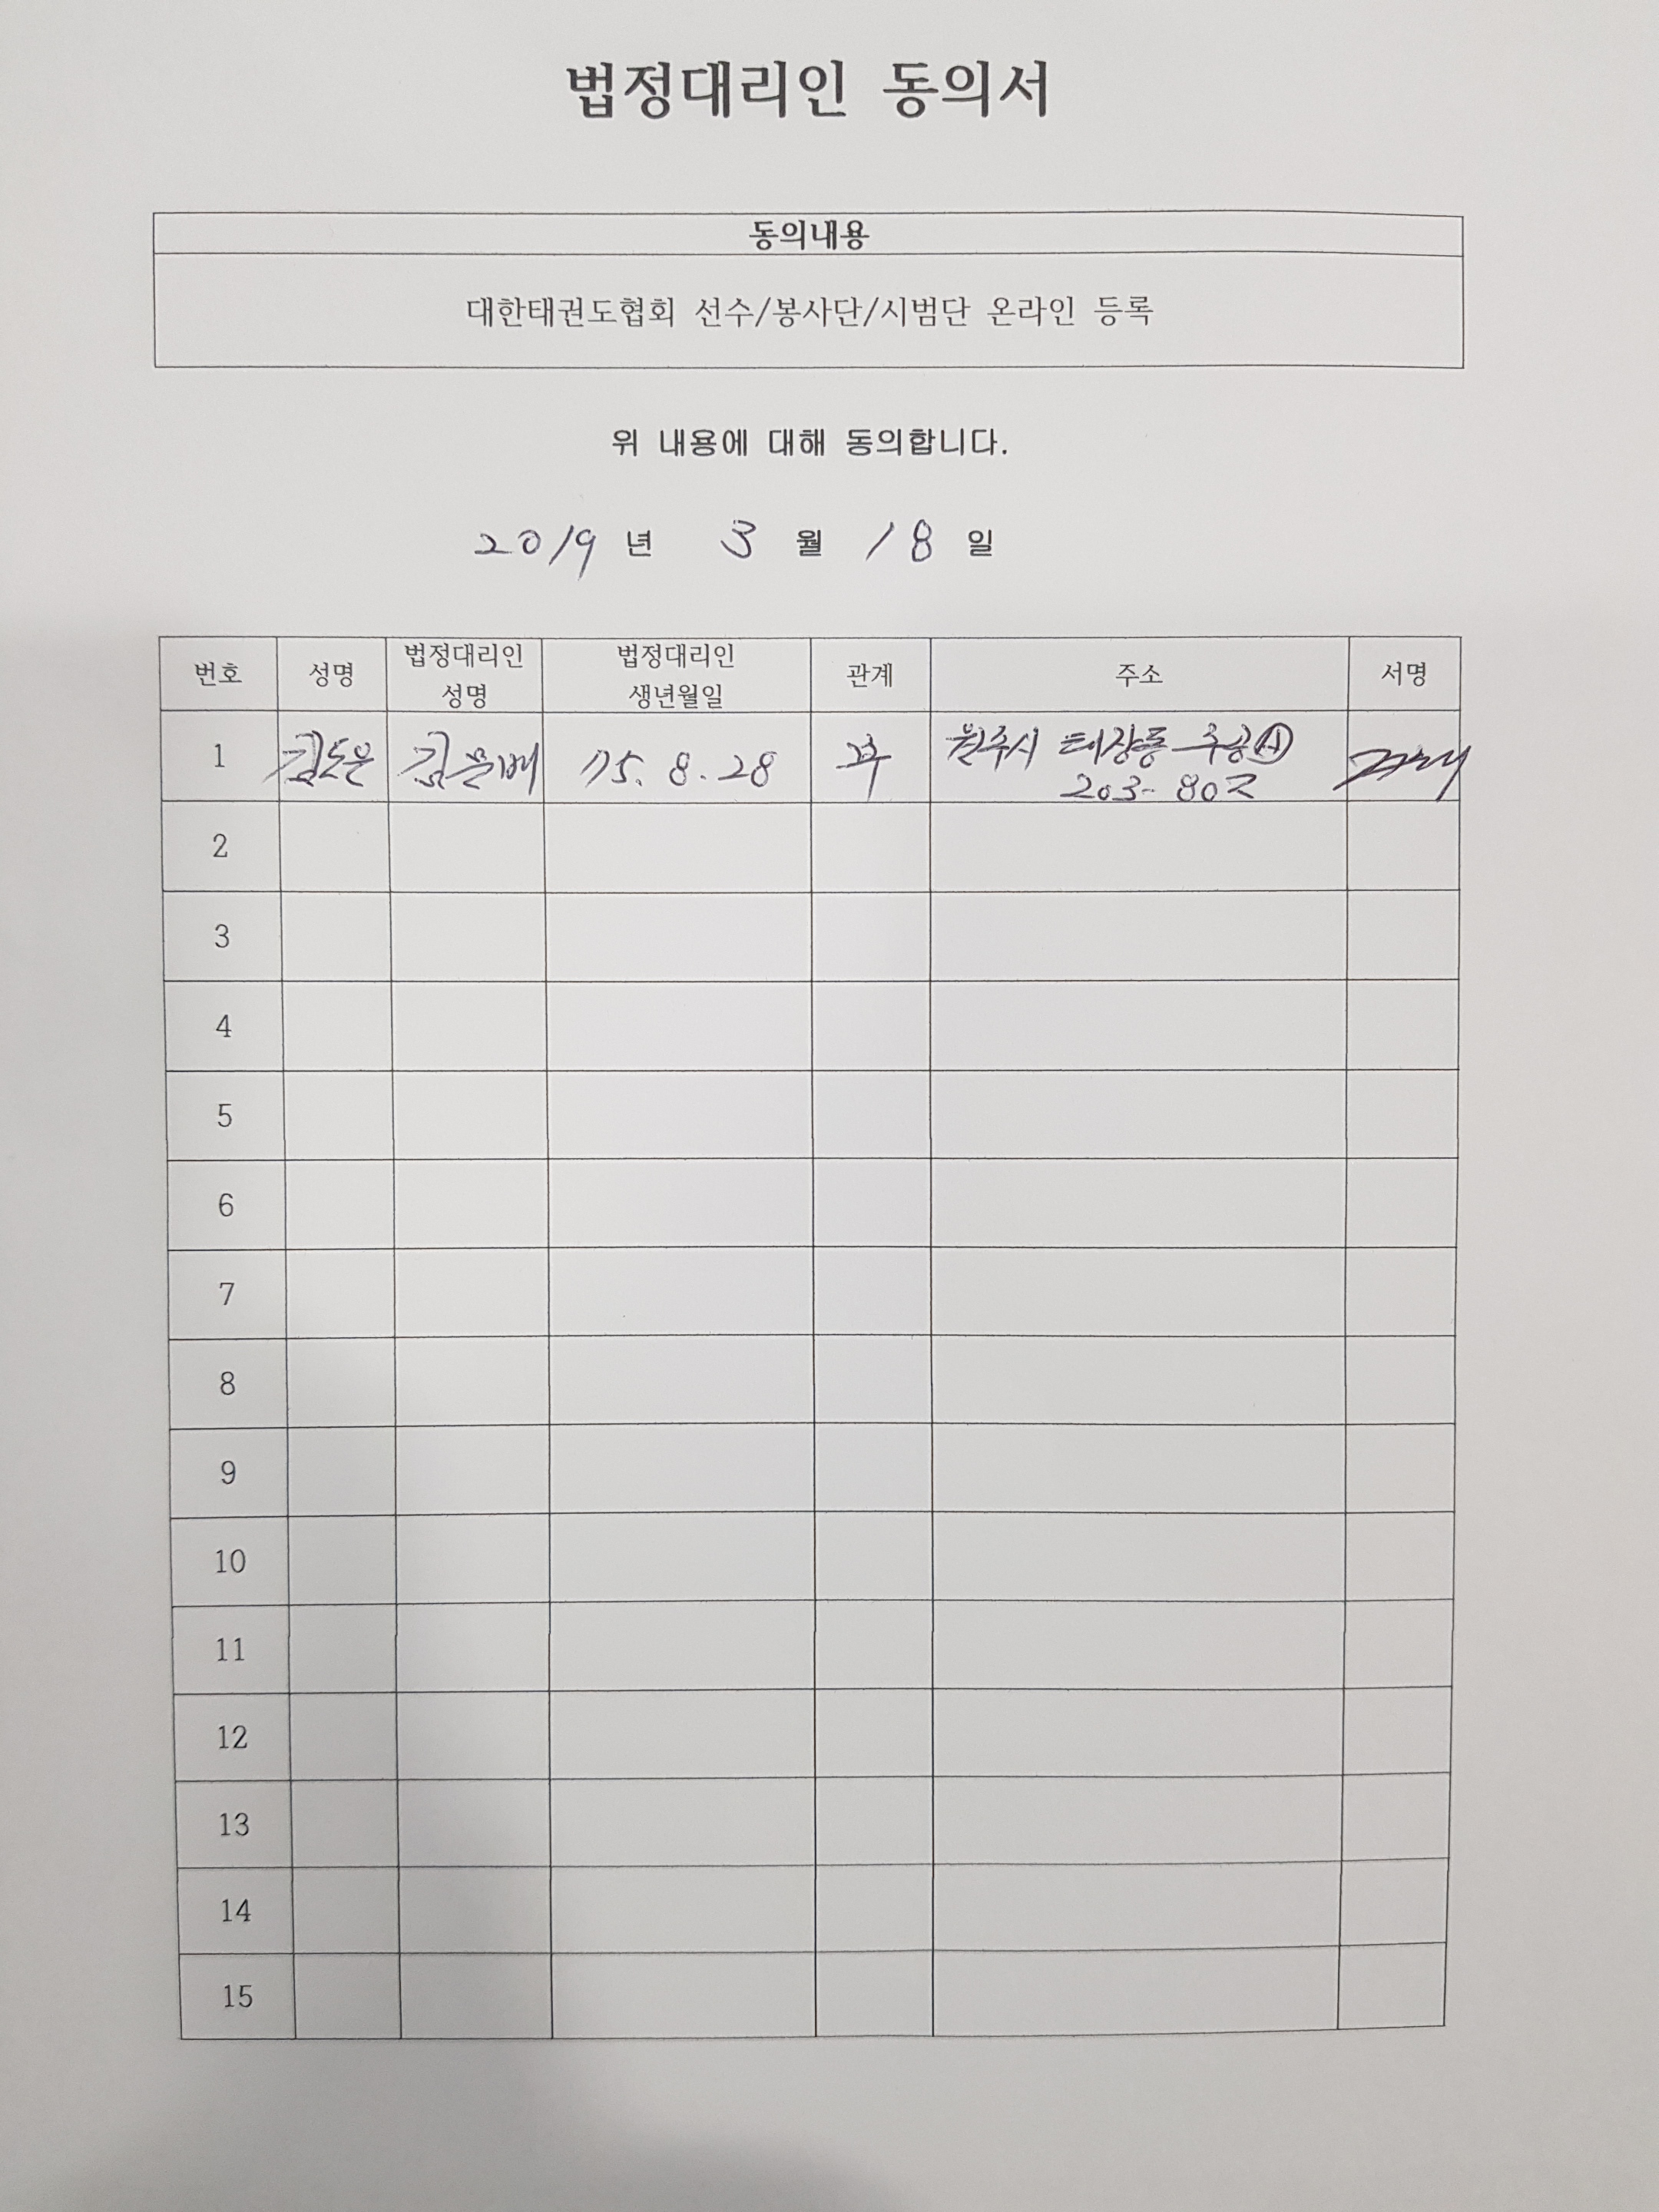 법정대리인 동의서
동의내용
대한태권도협회 선수/봉사단/시범단 온라인 등록
위 내용에 대해 동의합니다.
2019 년 3 월 18 일
번호 성명 법정대리인 성명 법정대리인 생년월일 관계 주소 서명
1 김도운 75. 8. 28 부 원주시 태장동 주공Ⓐ
203-
2
3
4
5
6
7
8
9
10
11
12
13
14
15